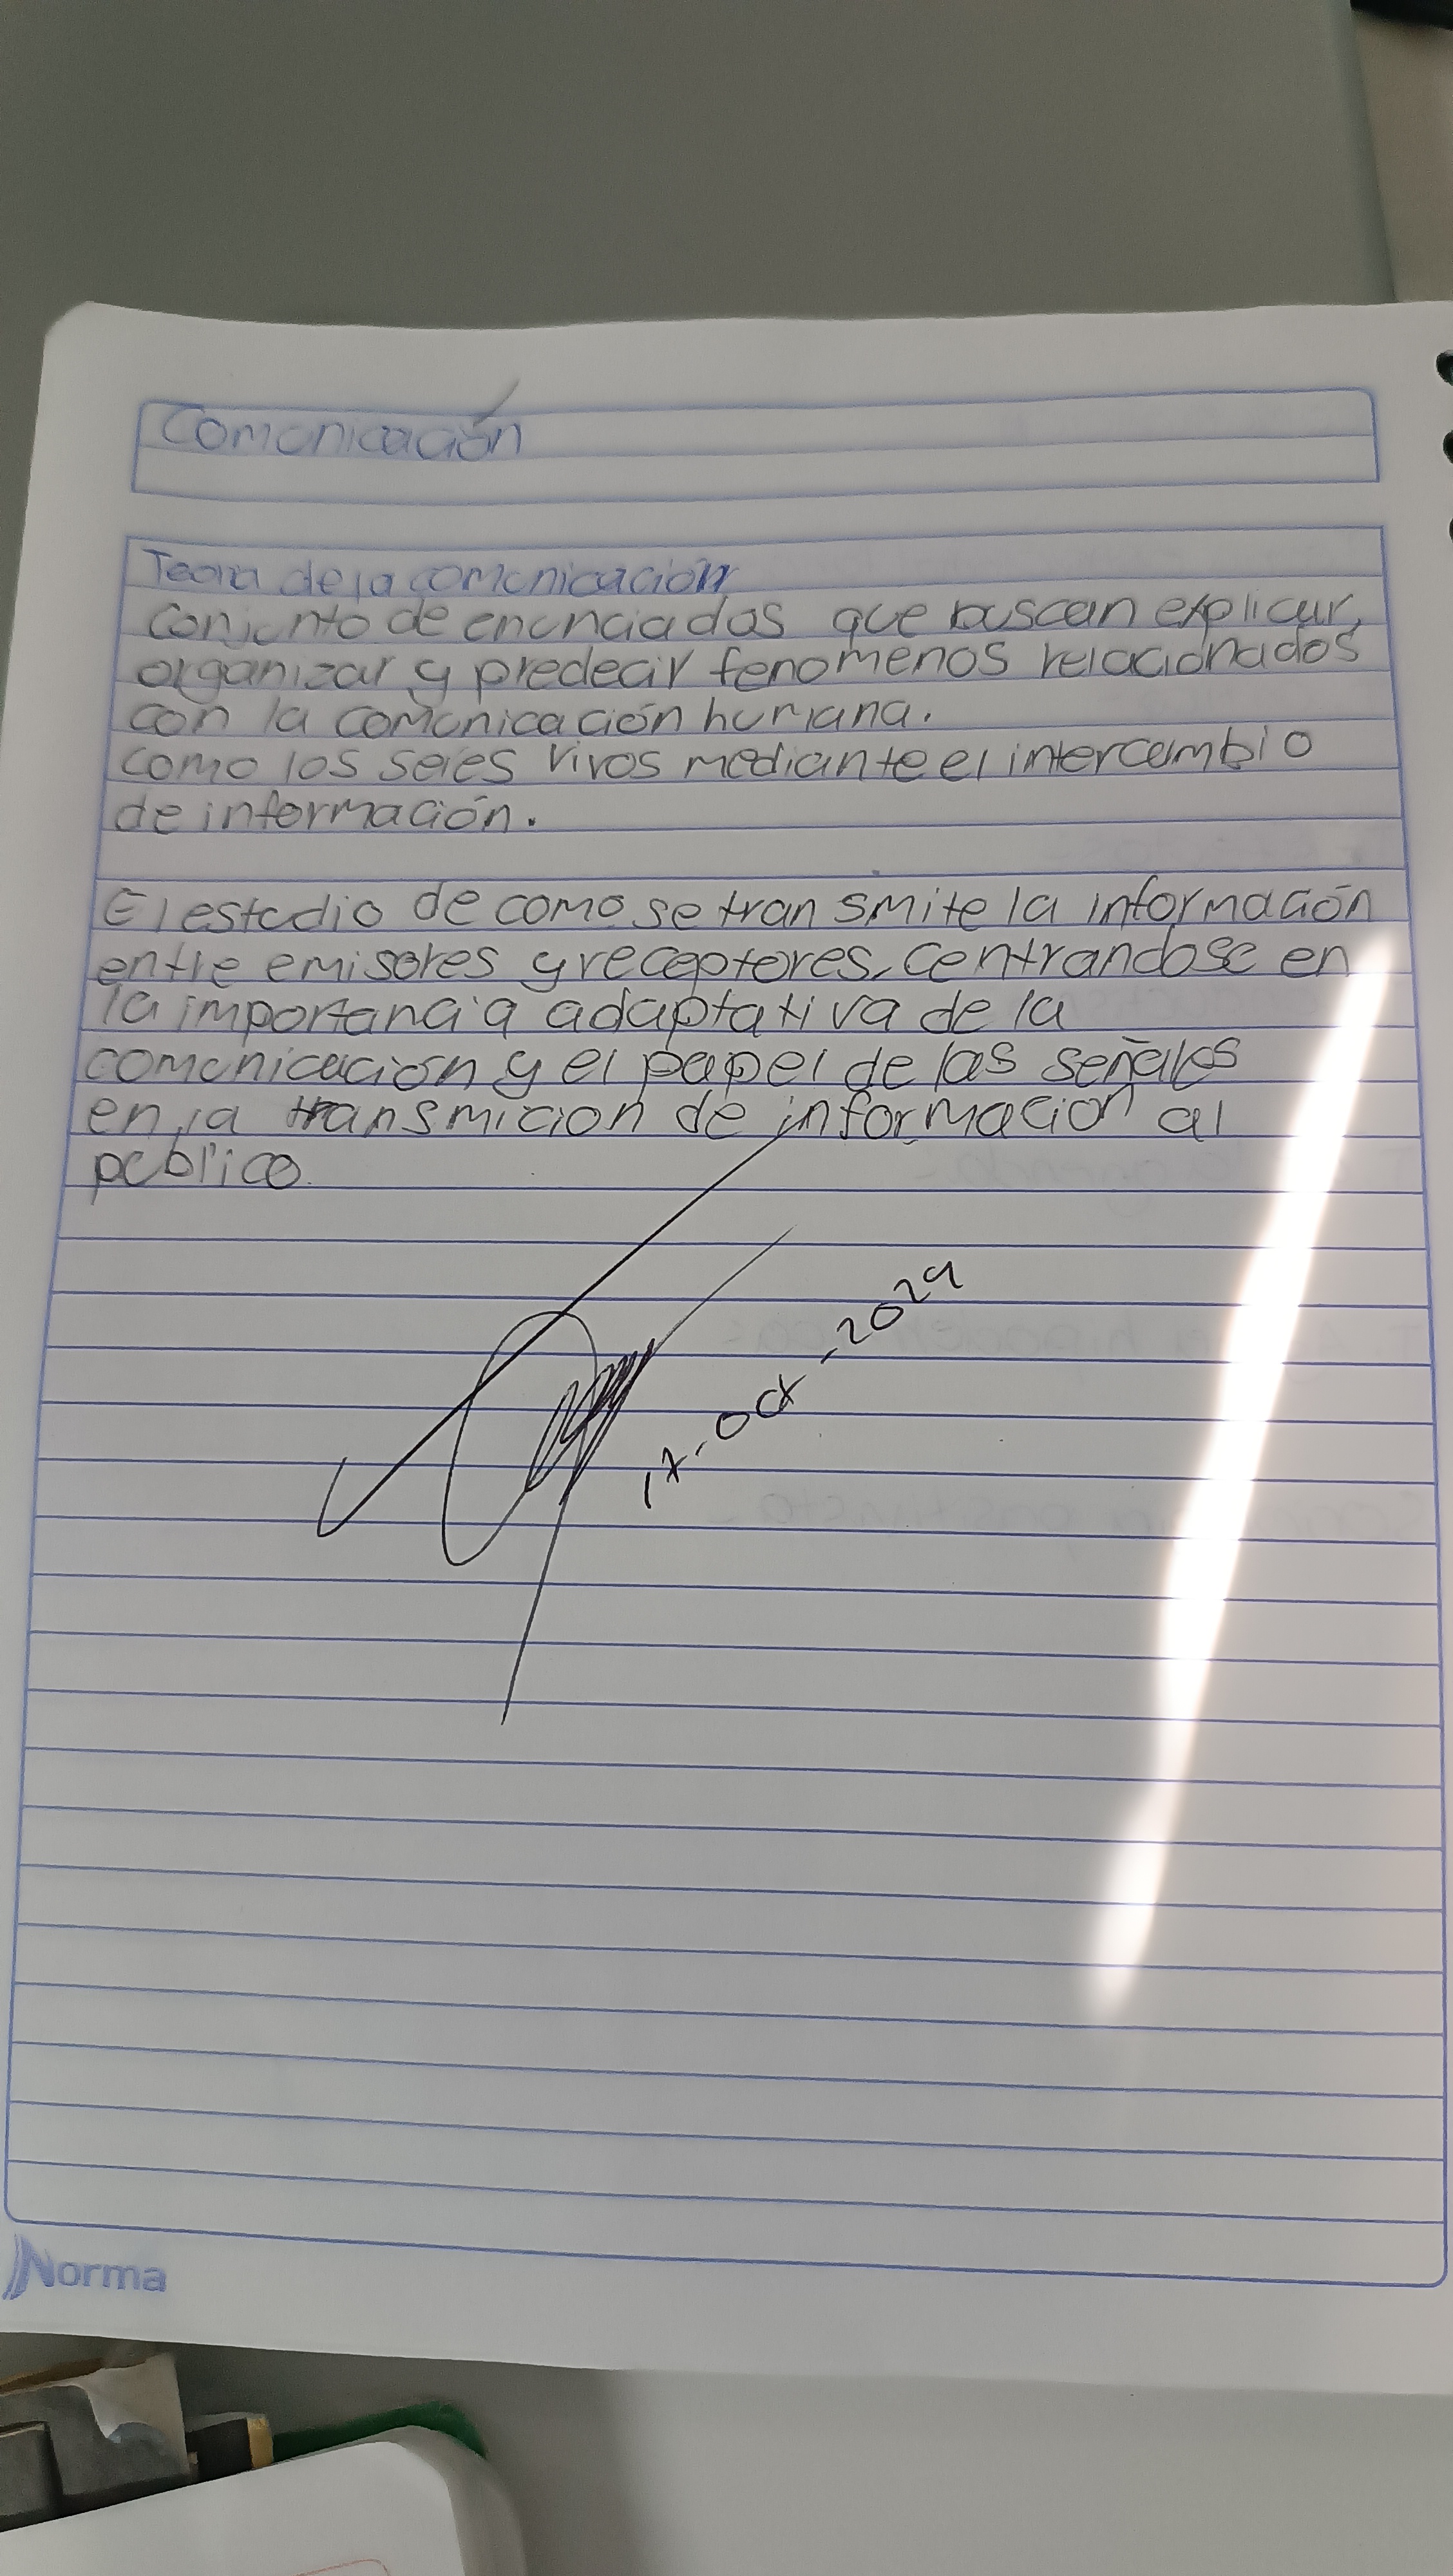 Comunicación
Teoria de la comunicación
Conjunto de enunciados que buscan explicar,
organizar y predecir fenomenos relacionados
con la comunicación humana.
como los seres vivos mediante el intercambio
de información.
El estudio de como se transmite la información
entre emisores y receptores, centrandose en
la importancia adaptativa de la
comunicación y el papel de las señales
en la transmicion de información al
publico.
17-oct-2024
Norma